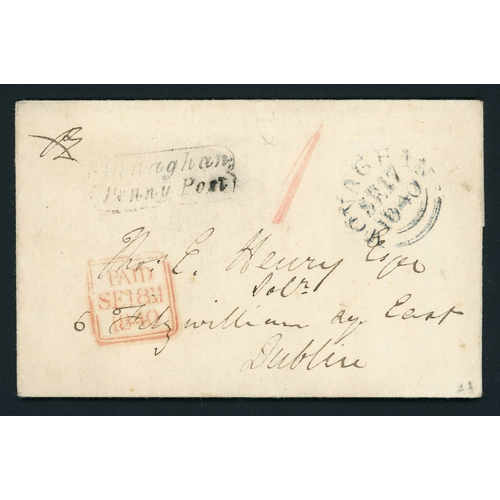 Monaghan
Penny Post
1
MONAGHAN
SE 17
1840
PAID
SE 18
1840
Thos. E. Henry Esqr
Solr.
6 Fitzwilliam sq. East
Dublin